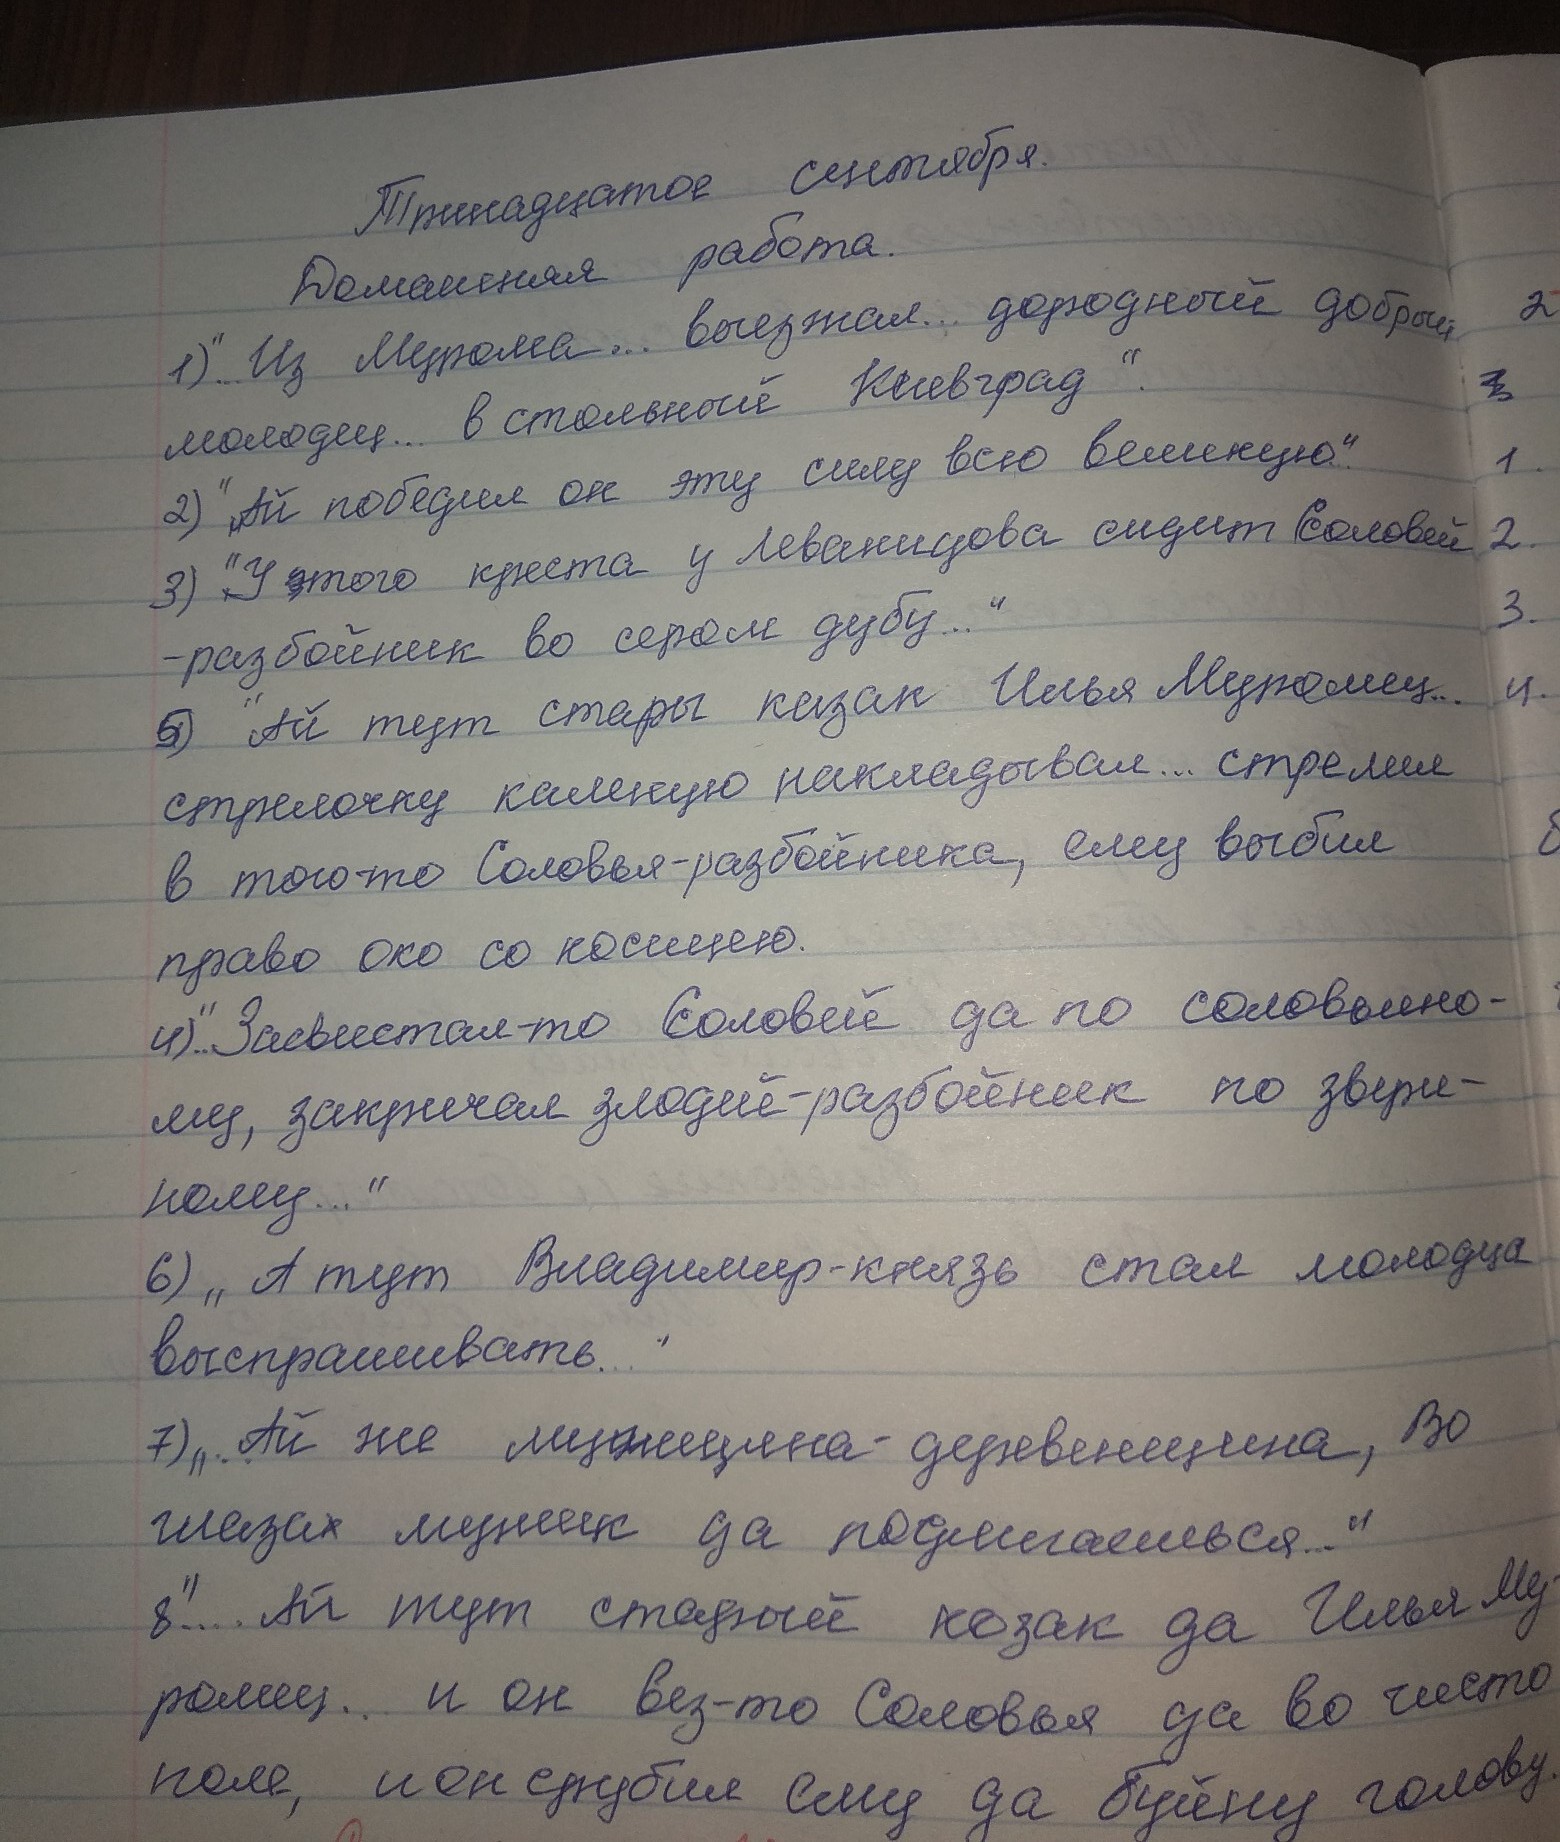 Тринадцатое сентября.
Домашняя работа.
1)"...Из Мурома... выезжал... дородный добрый
молодец... в стольный Киевград".
2) "Ай победил он эту силу всю великую."
3) "У этого креста у Леванидова сидит Соловей
-разбойник во сером дубу..."
5) "Ай тут стары казак Илья Муромец...
стрелочку каленую накладывал... стрелил
в того-то Соловья-разбойника, ему выбил
право око со косицею.
4)"..Засвистал-то Соловей да по соловьино-
му, закричал злодей-разбойник по звери-
ному..."
6) „А тут Владимир-князь стал молодца
выспрашивать..."
7)„...Ай же мужищина-деревенщина, Во
глазах мужик да подлигаешься..."
8"....Ай тут стадный козак да Илья Му-
ромец... и он вез-то Соловья да во чисто
поле, и он срубил ему да буйну голову.
2
1.
2.
3.
4.